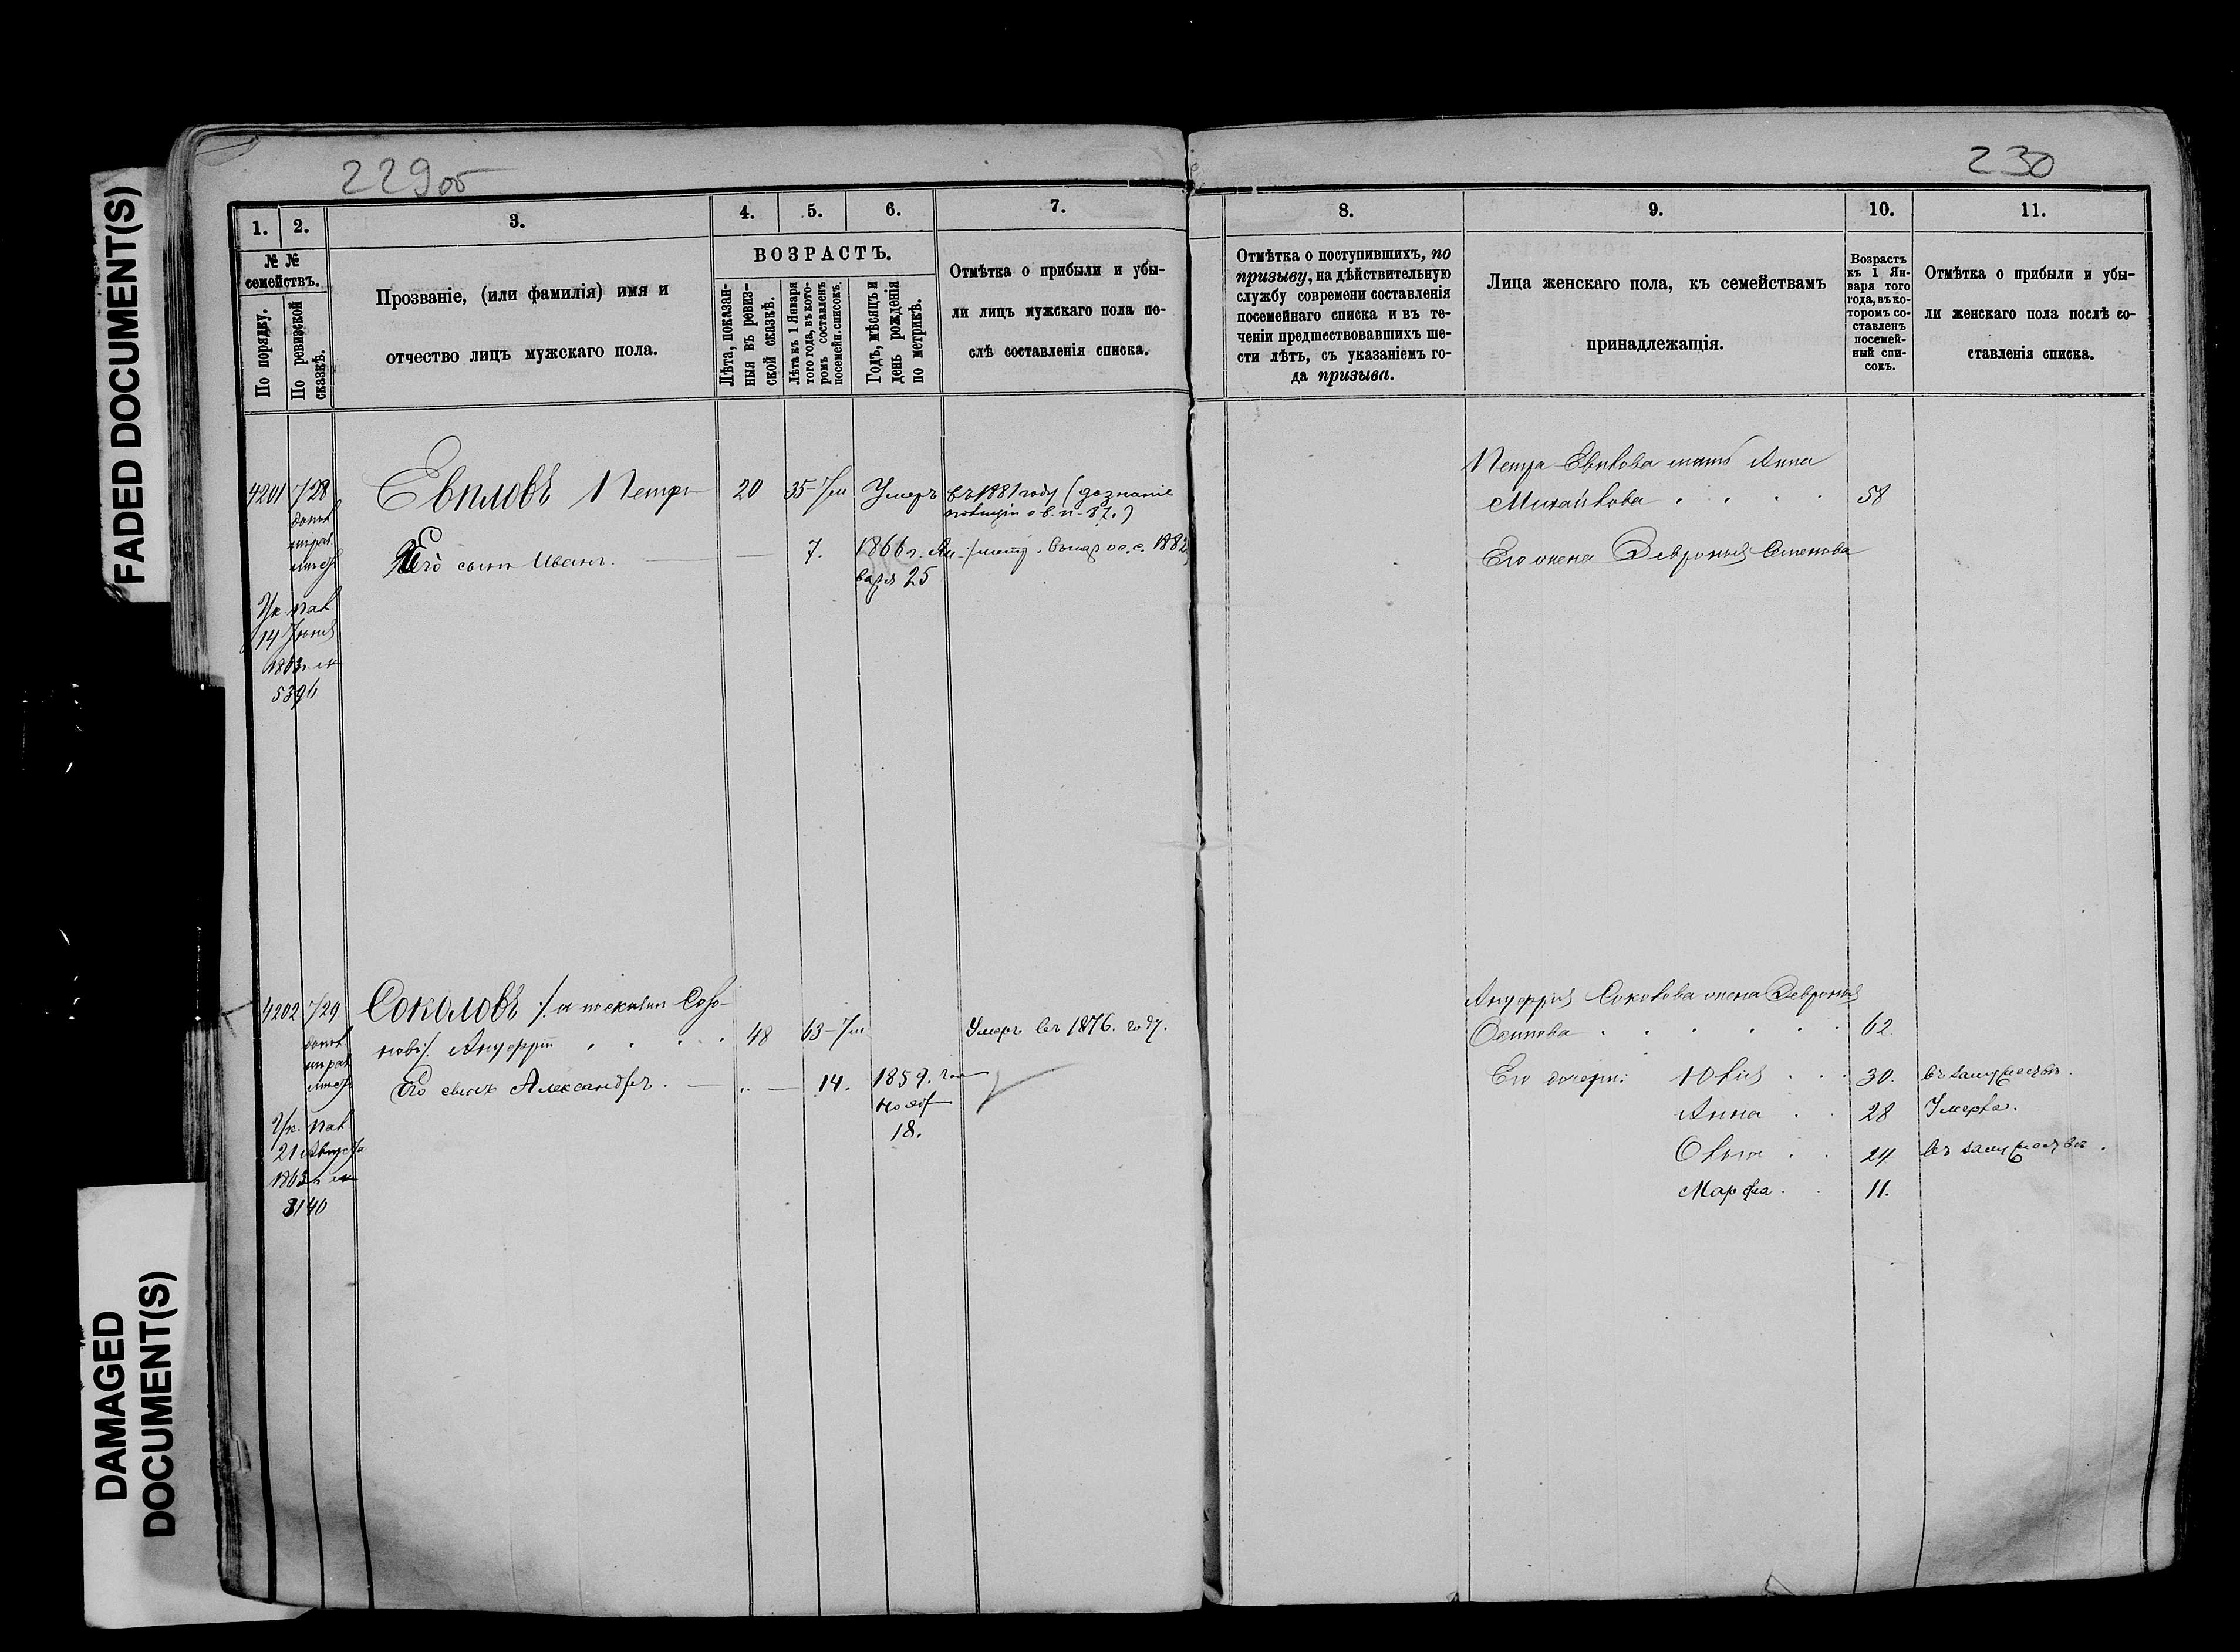 FADED DOCUMENT(S)
DAMAGED
DOCUMENT(S)
229об
230
1.
2.
3.
4.
5.
6.
7.
8.
9.
10.
11.
№ №
семействъ.
По порядку.
По ревизской
сказкѣ.
Прозваніе, (или фамилія) имя и
отчество лицъ мужскаго пола.
ВОЗРАСТЪ.
Лѣта, показан-
ныя въ ревиз-
ской сказкѣ.
Лѣта къ 1 Января
того года, въ кото-
ромъ составленъ
посемейн. списокъ.
Годъ, мѣсяцъ и
день рожденія
по метрикѣ.
Отмѣтка о прибыли и убы-
ли лицъ мужскаго пола по-
слѣ составленія списка.
Отмѣтка о поступившихъ, по
призыву, на дѣйствительную
службу современи составленія
посемейнаго списка и въ те-
ченіи предшествовавшихъ ше-
сти лѣтъ, съ указаніемъ го-
да призыва.
Лица женскаго пола, къ семействамъ
принадлежащія.
Возрастъ
къ 1 Ян-
варя того
года, въ ко-
торомъ со-
ставленъ
посемей-
ный спи-
сокъ.
Отмѣтка о прибыли и убы-
ли женскаго пола послѣ со-
ставленія списка.
4201 728
Евпловъ Петръ 20 35 Умеръ въ 1881 году (дознаніе
полиціи
Его сынъ Иванъ. 7. 1866 г. Ян-
варя 25
1882
Ук. пал.
14 Іюня
5396
Петра Евплова мать Анна
Михайлова 58
Его жена Февронья Семенова
4202 729
Соколовъ /: а по сказкѣ Созо-
новъ:/ Ануфрій 48 63 Умеръ въ 1876. году.
Его сынъ Александръ. 14. 1859. год
Нояб
18.
Ук. пал
21 Августа
3140
Ануфрія Соколова жена Февронья
Осипова 62
Его дочери: Юлія 30. въ замужествѣ.
Анна 28 Умерла.
Ольга 24 въ замужествѣ.
Марфа 11.